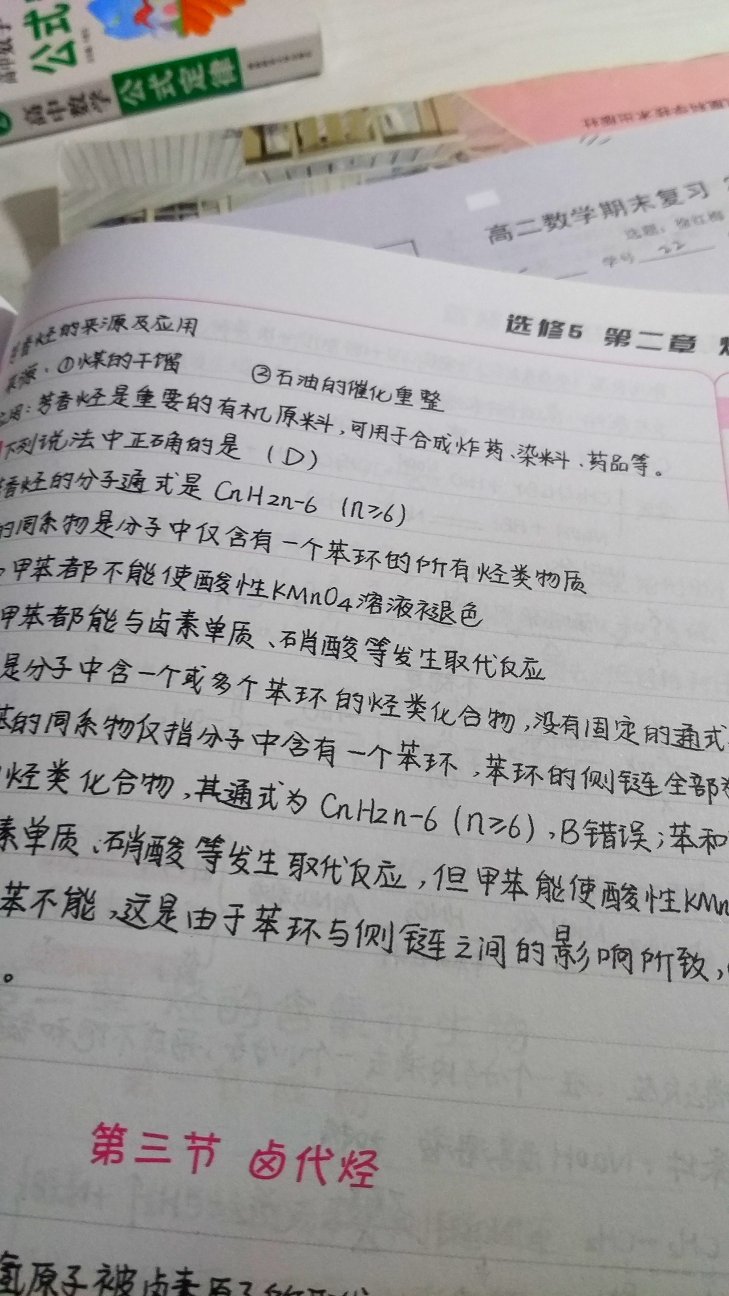 公式
高中数学 公式定律
高二数学期末复习
选题：徐红梅
学号 22
选修5 第二章
香烃的来源及应用
来源：①煤的干馏 ②石油的催化重整
用：芳香烃是重要的有机原料，可用于合成炸药、染料、药品等。
下列说法中正确的是（D）
香烃的分子通式是 CnH2n-6 (n≥6)
的同系物是分子中仅含有一个苯环的所有烃类物质
甲苯都不能使酸性KMnO4溶液褪色
甲苯都能与卤素单质、硝酸等发生取代反应
是分子中含一个或多个苯环的烃类化合物，没有固定的通式
的同系物仅指分子中含有一个苯环，苯环的侧链全部
烃类化合物，其通式为 CnH2n-6 (n≥6)，B错误；苯和
素单质、硝酸等发生取代反应，但甲苯能使酸性KMn
苯不能，这是由于苯环与侧链之间的影响所致，
。
第三节 卤代烃
氢原子被卤素原子